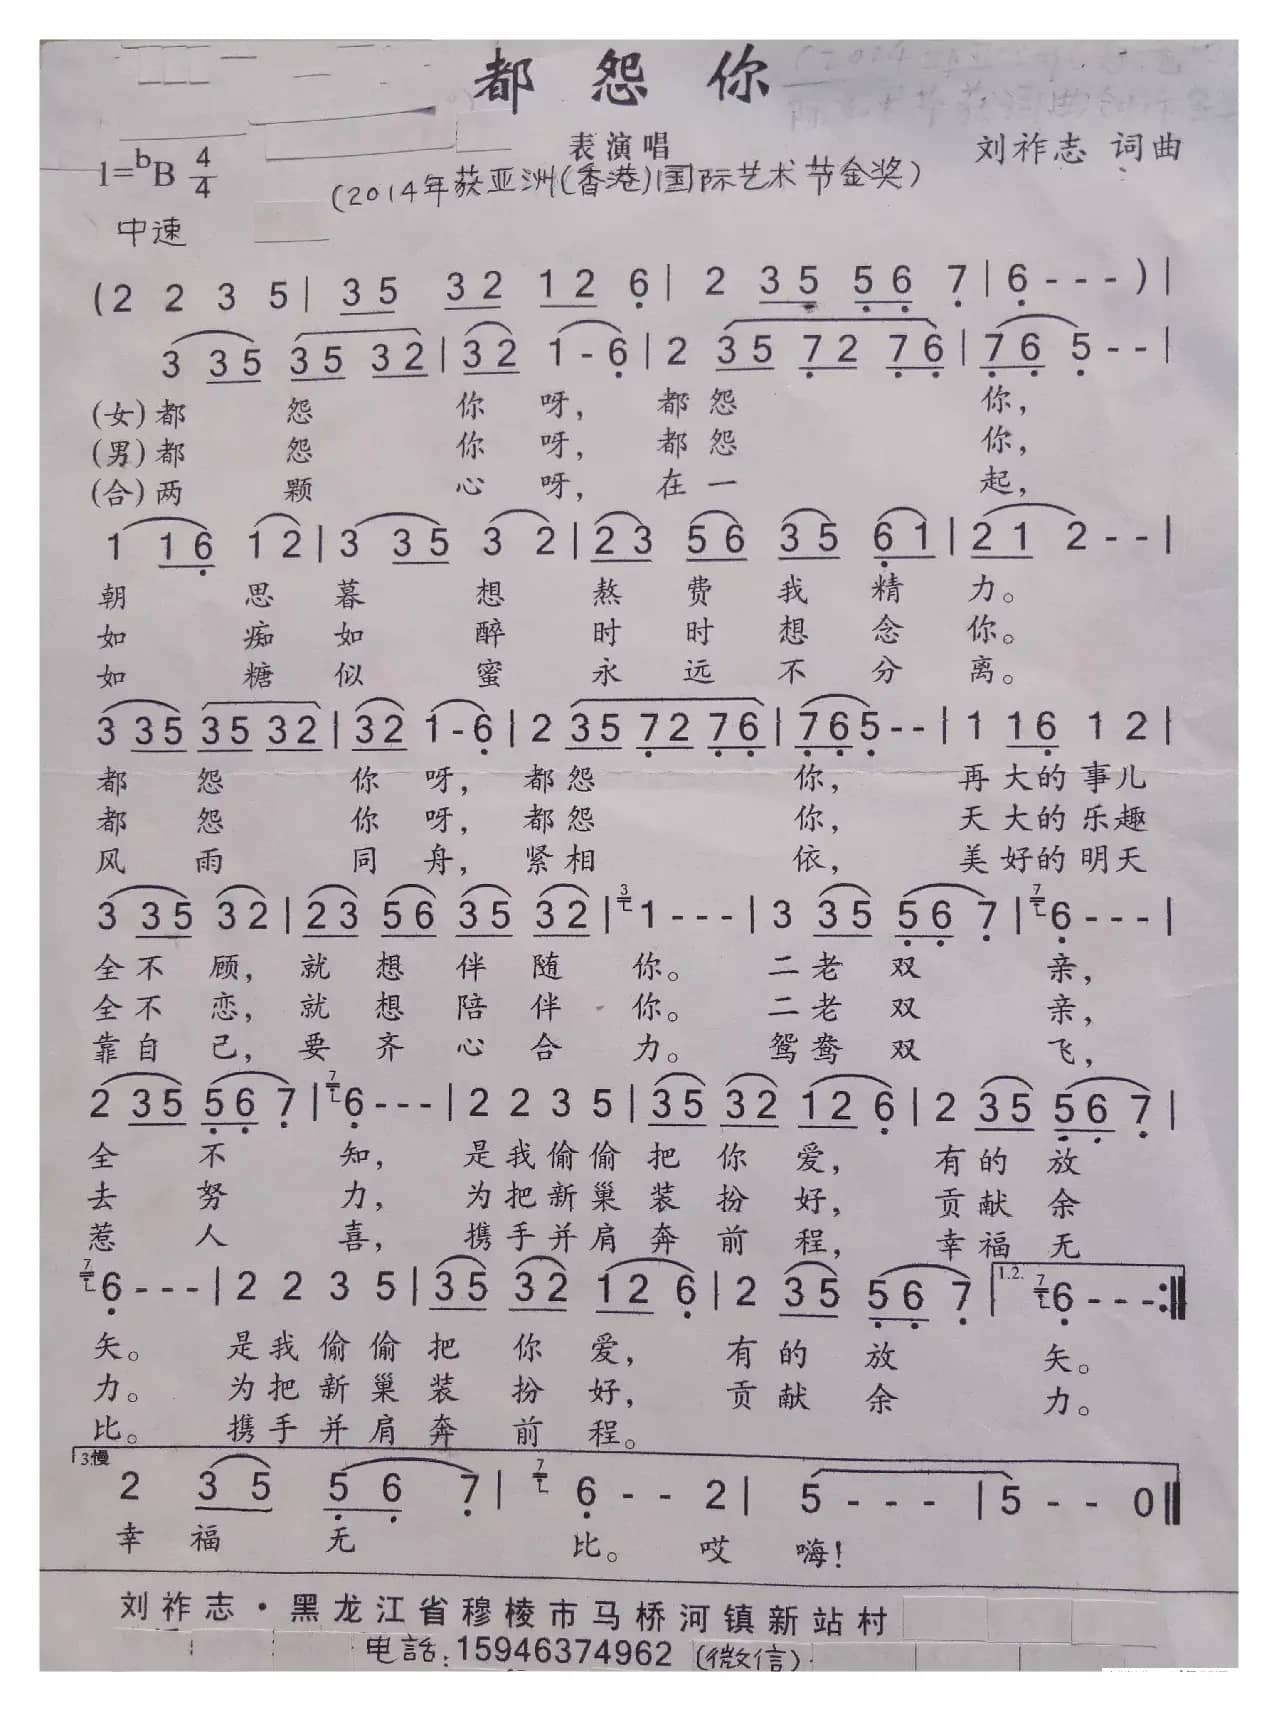 都怨你
表演唱
刘祚志 词曲
1=ᵇB 4/4
(2014年获亚洲(香港)国际艺术节金奖)
中速
(2 2 3 5 | 3 5 3 2 1 2 6̣ | 2 3 5 5̣ 6̣ 7̣ | 6̣ - - - ) |
3 3 5 3 5 3 2 | 3 2 1 - 6̣ | 2 3 5 7̣ 2 7̣ 6̣ | 7̣ 6̣ 5̣ - - |
(女)都 怨 你 呀, 都 怨 你,
(男)都 怨 你 呀, 都 怨 你,
(合)两 颗 心 呀, 在 一 起,
1 1 6̣ 1 2 | 3 3 5 3 2 | 2 3 5 6 3 5 6̣ 1 | 2 1 2 - - |
朝 思 暮 想 熬 费 我 精 力。
如 痴 如 醉 时 时 想 念 你。
如 糖 似 蜜 永 远 不 分 离。
3 3 5 3 5 3 2 | 3 2 1 - 6̣ | 2 3 5 7̣ 2 7̣ 6̣ | 7̣ 6̣ 5̣ - - | 1 1 6̣ 1 2 |
都 怨 你 呀, 都 怨 你, 再 大 的 事 儿
都 怨 你 呀, 都 怨 你, 天 大 的 乐 趣
风 雨 同 舟, 紧 相 依, 美 好 的 明 天
3 3 5 3 2 | 2 3 5 6 3 5 3 2 | 3 1 - - - | 3 3 5 5̣ 6̣ 7̣ | 7 6̣ - - - |
全 不 顾, 就 想 伴 随 你。 二 老 双 亲,
全 不 恋, 就 想 陪 伴 你。 二 老 双 亲,
靠 自 己, 要 齐 心 合 力。 鸳 鸯 双 飞,
2 3 5 5̣ 6̣ 7̣ | 7 6̣ - - - | 2 2 3 5 | 3 5 3 2 1 2 6̣ | 2 3 5 5̣ 6̣ 7̣ |
全 不 知, 是 我 偷 偷 把 你 爱, 有 的 放
去 努 力, 为 把 新 巢 装 扮 好, 贡 献 余
惹 人 喜, 携 手 并 肩 奔 前 程, 幸 福 无
7 6̣ - - - | 2 2 3 5 | 3 5 3 2 1 2 6̣ | 2 3 5 5̣ 6̣ 7̣ | 1.2. 7 6̣ - - - :‖
矢。 是 我 偷 偷 把 你 爱, 有 的 放 矢。
力。 为 把 新 巢 装 扮 好, 贡 献 余 力。
比。 携 手 并 肩 奔 前 程。
3.慢
2 3 5 5̣ 6̣ 7̣ | 7 6̣ - - 2 | 5 - - - | 5 - - 0 ‖
幸 福 无 比。 哎 嗨!
刘祚志·黑龙江省穆棱市马桥河镇新站村
电話:15946374962 (微信)